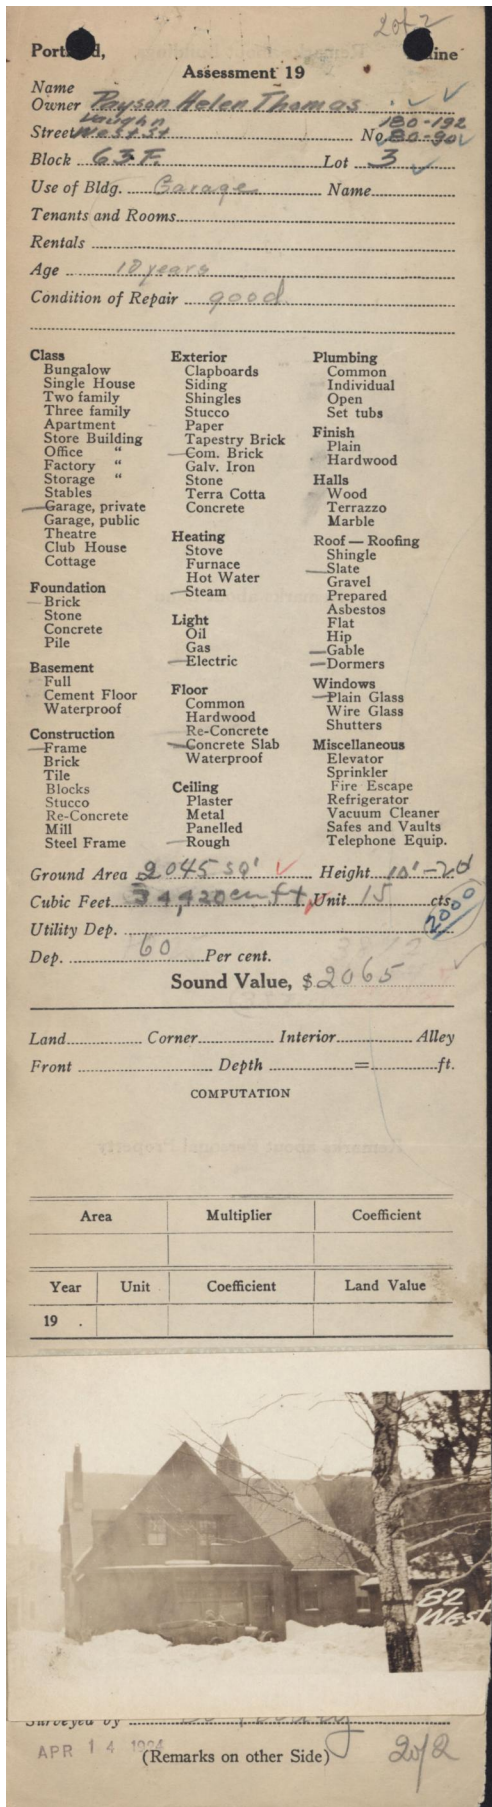 2 of 2
Portland, Maine
Assessment 19
Name
Owner Payson Helen Thomas
Vaughn 180-192
Street West St No. 80-90
Block 63 F Lot 3
Use of Bldg. Garage Name
Tenants and Rooms
Rentals
Age 10 years
Condition of Repair good
Class
Bungalow
Single House
Two family
Three family
Apartment
Store Building
Office "
Factory "
Storage "
Stables
Garage, private
Garage, public
Theatre
Club House
Cottage
Foundation
Brick
Stone
Concrete
Pile
Basement
Full
Cement Floor
Waterproof
Construction
Frame
Brick
Tile
Blocks
Stucco
Re-Concrete
Mill
Steel Frame
Exterior
Clapboards
Siding
Shingles
Stucco
Paper
Tapestry Brick
Com. Brick
Galv. Iron
Stone
Terra Cotta
Concrete
Heating
Stove
Furnace
Hot Water
Steam
Light
Oil
Gas
Electric
Floor
Common
Hardwood
Re-Concrete
Concrete Slab
Waterproof
Ceiling
Plaster
Metal
Panelled
Rough
Plumbing
Common
Individual
Open
Set tubs
Finish
Plain
Hardwood
Halls
Wood
Terrazzo
Marble
Roof — Roofing
Shingle
Slate
Gravel
Prepared
Asbestos
Flat
Hip
Gable
Dormers
Windows
Plain Glass
Wire Glass
Shutters
Miscellaneous
Elevator
Sprinkler
Fire Escape
Refrigerator
Vacuum Cleaner
Safes and Vaults
Telephone Equip.
Ground Area 2045 sq' Height 10'-20'
Cubic Feet 34,420 cu ft, Unit 15 cts.
2000
Utility Dep.
Dep. 60 Per cent.
Sound Value, $ 2065
Land Corner Interior Alley
Front Depth = ft.
COMPUTATION
Area Multiplier Coefficient
Year Unit Coefficient Land Value
19 .
82
West
Surveyed by
APR 14 1924
(Remarks on other Side) 2 of 2